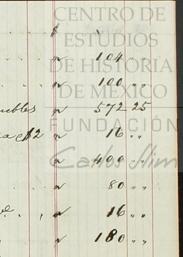 CENTRO DE
ESTUDIOS
DE HISTORIA
DE MÉXICO
FUNDACIÓN
Carlos Slim
" 104 ..
" 100 ..
ubles " 572 25
a $2 " 16 ..
" 400 ..
" 80 ..
" 16 ..
" 180 ..